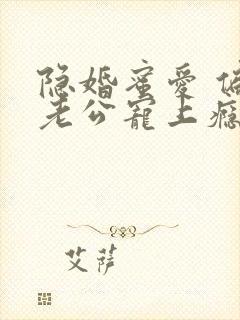 隐婚蜜爱
老公宠上瘾
艾萨